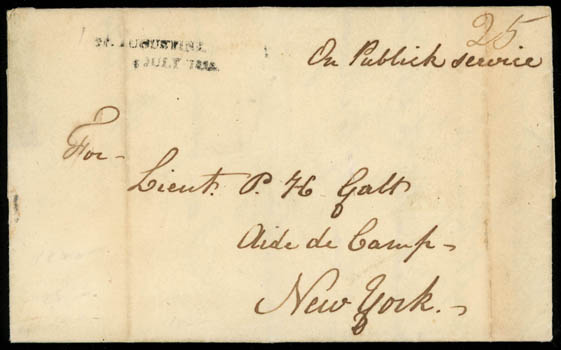 25
ST. AUGUSTINE
JULY
On Publick service
For
Lieut. P. H Galt
Aide de Camp
New York.